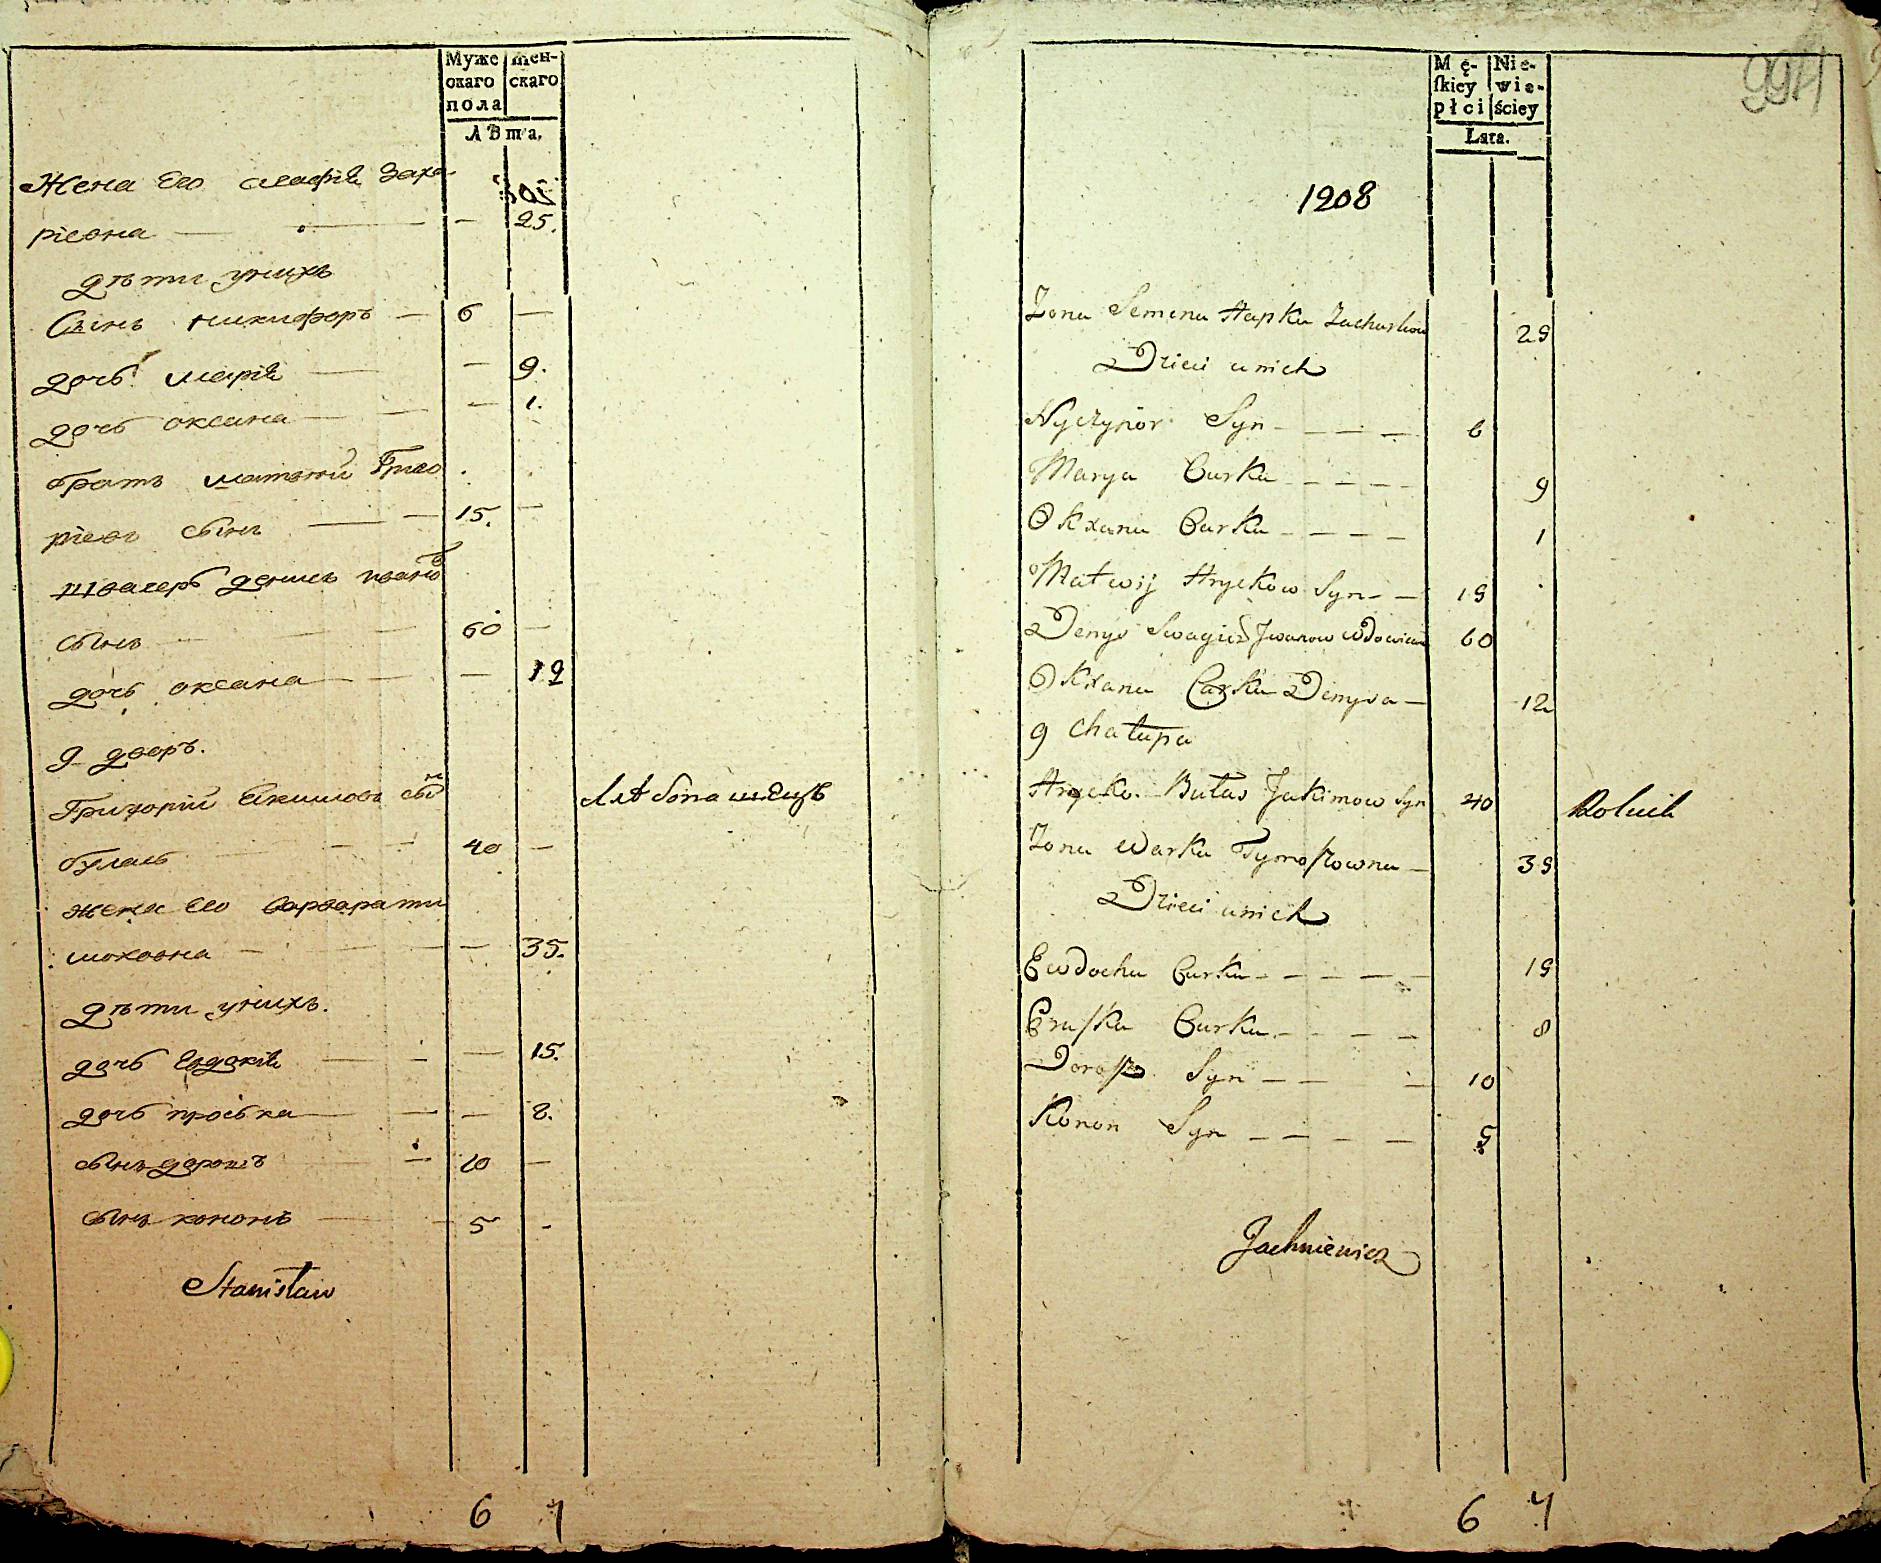 Муже
скаго
пола
Жен-
скаго
Лѣта.
Жена Его Агафія Заха
ріевна — — 25.
дѣти унихъ
Сынъ никифоръ — 6 —
дочь марія — — 9.
дочь оксана — — — 1.
братъ матвѣй Григо
ріевъ сынъ — — 15. —
Швагеръ денисъ иванов
сынъ — — — 60 —
дочь оксана — — — 12
9 дворъ.
Григорій Екимовъ сын
буласъ — — 40 —
жена Его варвара ти
мохвона — — — 35.
дѣти унихъ.
дочь Евдокія — — — 15.
дочь проська — — — 8.
сынъ дорошъ — — 10 —
сынъ кононъ — — 5 -
Stanisław
6 7
Хлѣбопашецъ
994
Mę-
skiey
płci
Nie-
wie-
ściey
Lata.
1208
Zona Semena Hapka Zacharkow 25
Dzieci unich
Nyczypor Syn — — — 6
Marya Curka — — — — 9
Oxana Curka — — — — 1
Matwij Hryckow Syn — — 15
Denys Swagier Jwanow Wdowiec 60
Oxana Curka Denysa — 12
9 Chałupa
Hrycko Butas Jakimow Syn 40 Rolnik
Zona Warka Tymoszowna — 35
Dzieci unich
Ewdocha Curka — — — — 15
Pruska Curka — — — — 8
Dorosz Syn — — — 10
Konon Syn — — — — 5
Jachniewicz
6 7